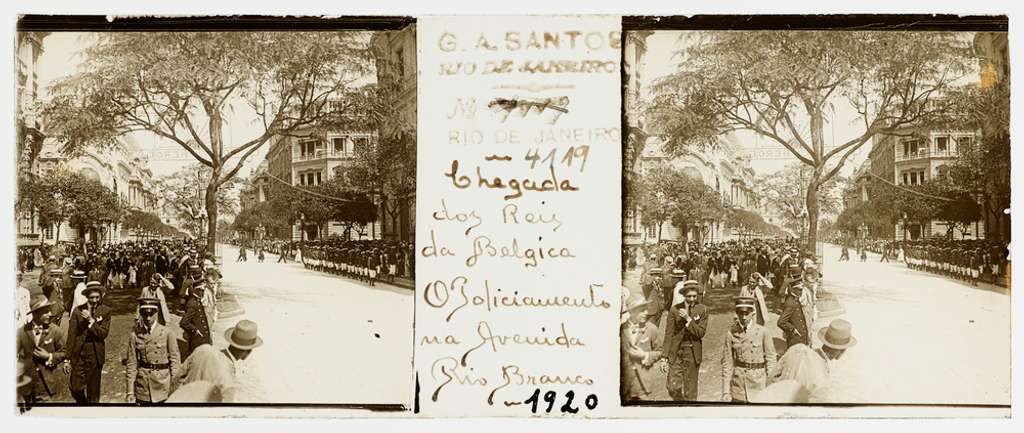 G. A. SANTOS
RIO DE JANEIRO
Nº
RIO DE JANEIRO
4119
Chegada
dos Reis
da Belgica
O Policiamento
na Avenida
Rio Branco
1920